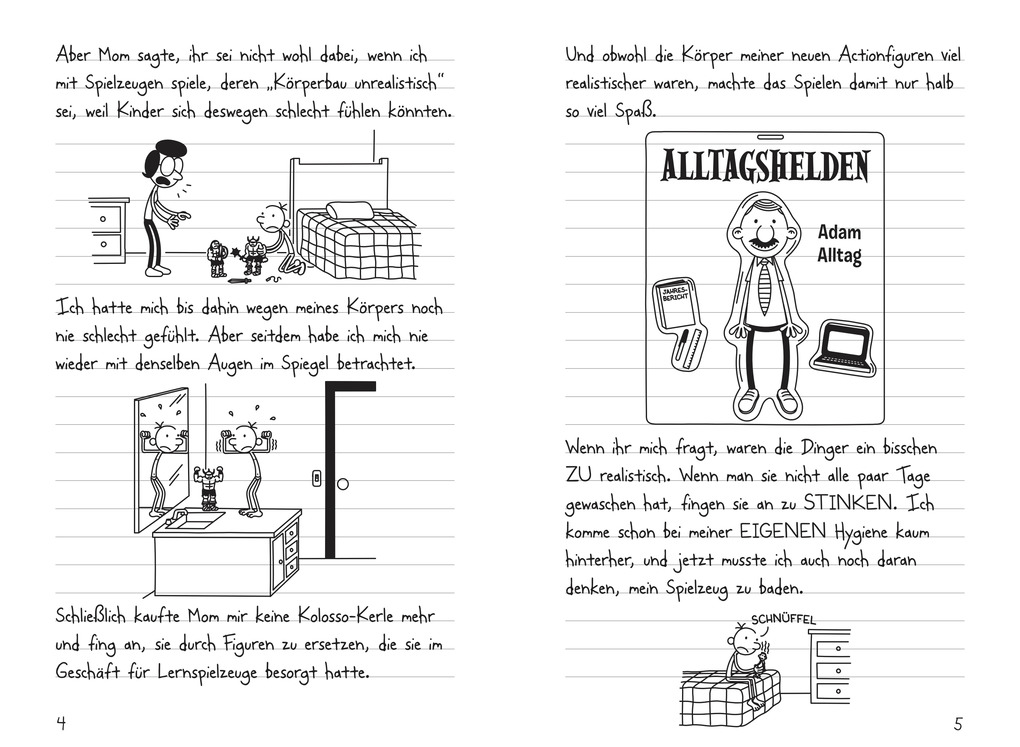 Aber Mom sagte, ihr sei nicht wohl dabei, wenn ich
mit Spielzeugen spiele, deren „Körperbau unrealistisch“
sei, weil Kinder sich deswegen schlecht fühlen könnten.
Ich hatte mich bis dahin wegen meines Körpers noch
nie schlecht gefühlt. Aber seitdem habe ich mich nie
wieder mit denselben Augen im Spiegel betrachtet.
Schließlich kaufte Mom mir keine Kolosso-Kerle mehr
und fing an, sie durch Figuren zu ersetzen, die sie im
Geschäft für Lernspielzeuge besorgt hatte.
4
Und obwohl die Körper meiner neuen Actionfiguren viel
realistischer waren, machte das Spielen damit nur halb
so viel Spaß.
ALLTAGSHELDEN
Adam
Alltag
JAHRES-
BERICHT
Wenn ihr mich fragt, waren die Dinger ein bisschen
ZU realistisch. Wenn man sie nicht alle paar Tage
gewaschen hat, fingen sie an zu STINKEN. Ich
komme schon bei meiner EIGENEN Hygiene kaum
hinterher, und jetzt musste ich auch noch daran
denken, mein Spielzeug zu baden.
SCHNÜFFEL
5